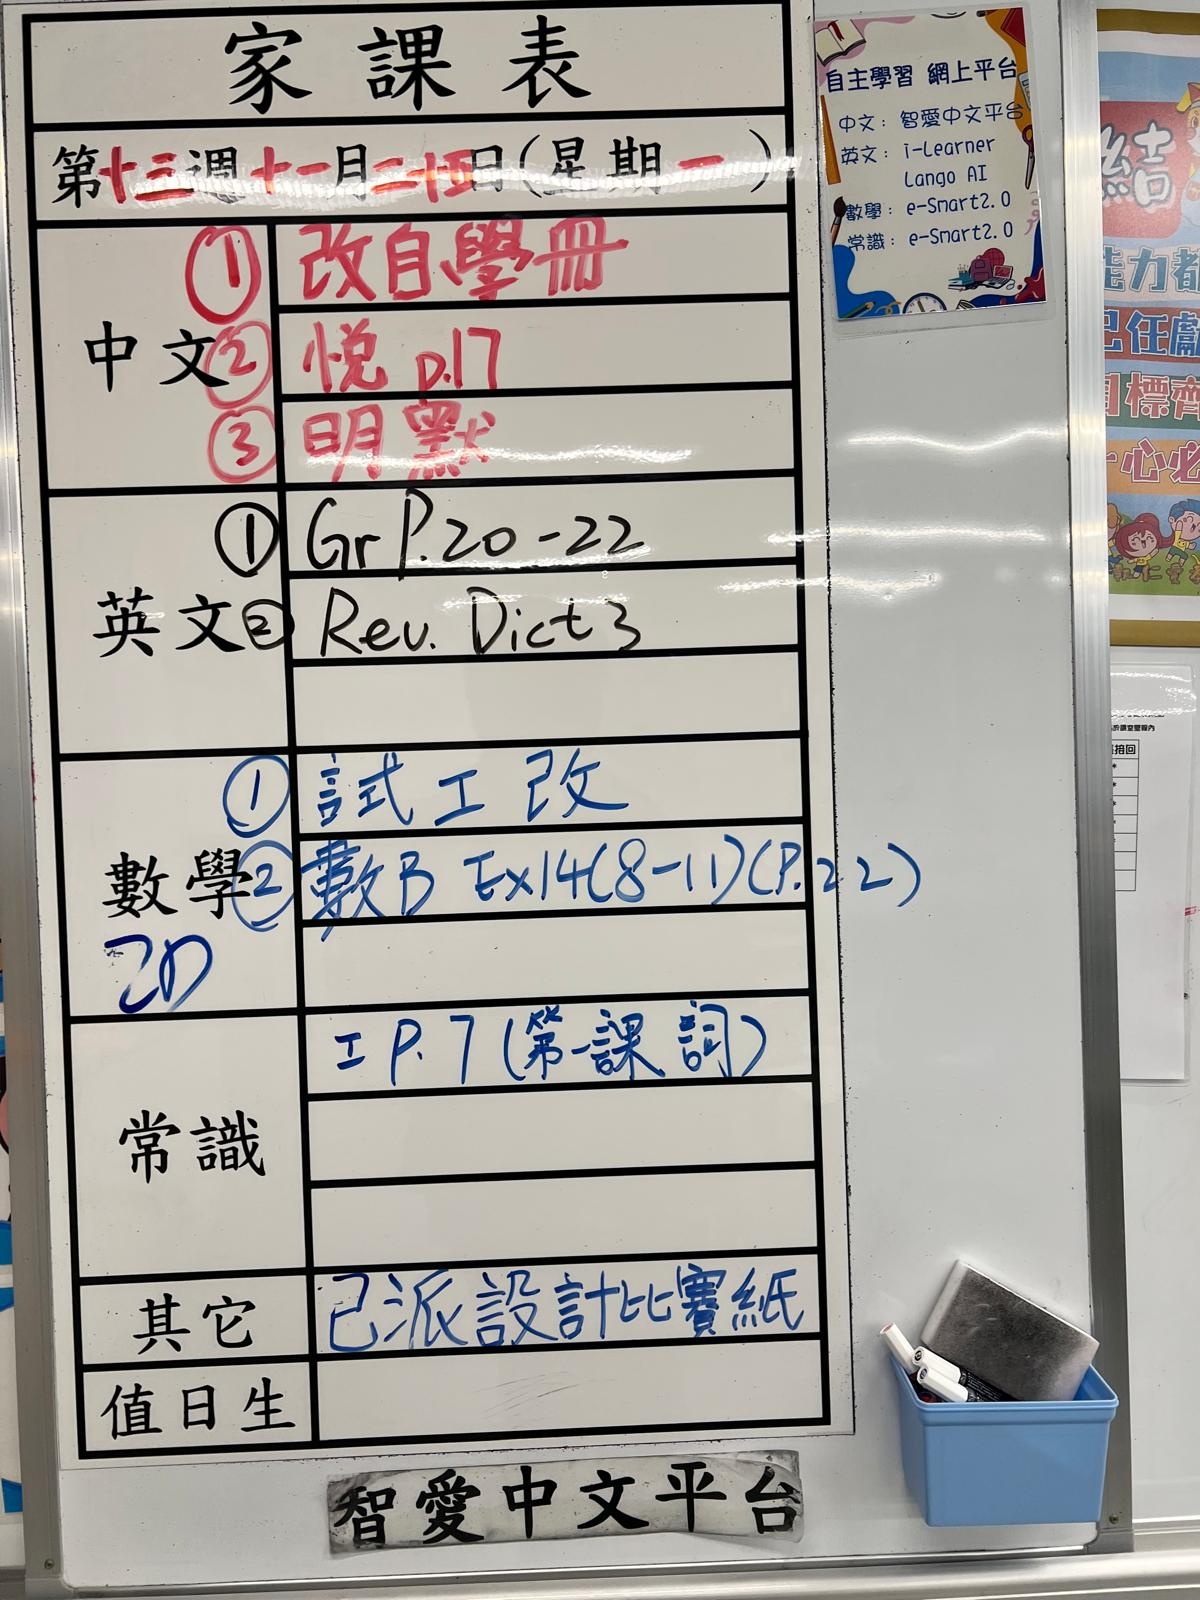 家課表
第十三週十一月二十四日(星期一)
中文
① 改自學冊
② 悅 p.17
③ 明默
英文
① Gr P.20-22
② Rev. Dict 3
數學
① 試工改
② 數B Ex14(8-11)(P.22)
常識
工 P.7 (第一課 詞)
其它
已派設計比賽紙
值日生
智愛中文平台
自主學習 網上平台
中文：智愛中文平台
英文：i-Learner
Lango AI
數學：e-Smart2.0
常識：e-Smart2.0
結
能力都
己任獻
目標齊
心必